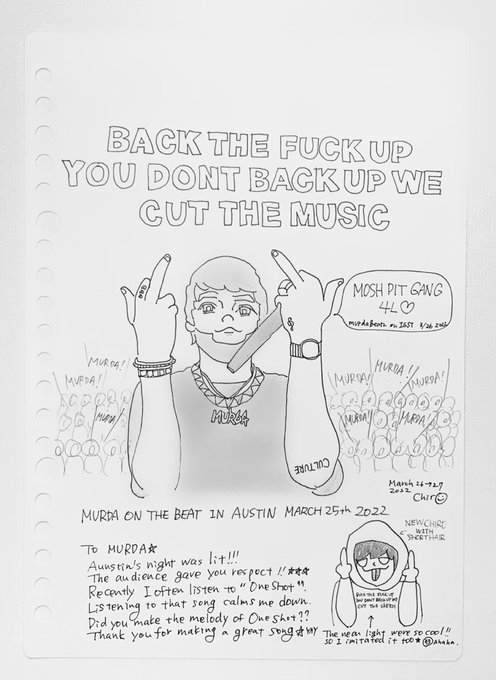 BACK THE FUCK UP
YOU DONT BACK UP WE
CUT THE MUSIC
MOSH PIT GANG
4L♡
murdabeatz on IGST 3/26 2022
MURDA!
MURDA!
MURDA!
MURDA!
MURDA!
MURDA!
MURDA!
MURDA!
MURDA
CULTURE
March 26→27
2022
Chiro
MURDA ON THE BEAT IN AUSTIN MARCH 25th 2022
To MURDA☆
Aunstin's night was lit!!!
The audience gave you respect!!☆☆☆
Recently I often listen to "One Shot".
Listening to that song calms me down.
Did you make the melody of One Shot??
Thank you for making a great song☆YAY
NEW CHIRO
WITH
SHORT HAIR
BACK THE FUCK UP
YOU DONT BACK UP WE
CUT THE SKETCH
The neon light were so cool!!
SO I imitated it too☆ Ahaha.